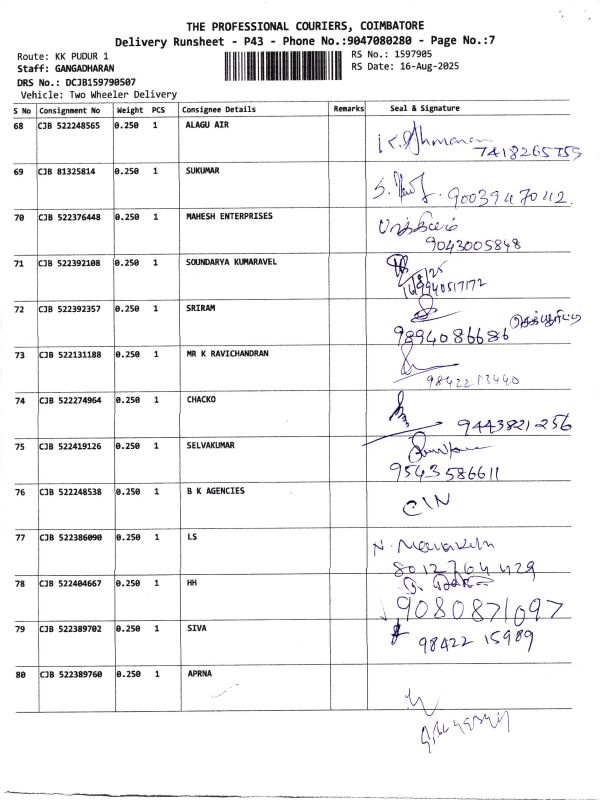 THE PROFESSIONAL COURIERS, COIMBATORE
Delivery Runsheet - P43 - Phone No.:9047080280 - Page No.:7
Route: KK PUDUR 1
RS No.: 1597905
Staff: GANGADHARAN
RS Date: 16-Aug-2025
DRS No.: DCJB159790507
Vehicle: Two Wheeler Delivery
S No Consignment No Weight PCS Consignee Details Remarks Seal & Signature
68 CJB 522248565 0.250 1 ALAGU AIR
7418265759
69 CJB 81325814 0.250 1 SUKUMAR
9003947042.
70 CJB 522376448 0.250 1 MAHESH ENTERPRISES
9043005848
71 CJB 522392108 0.250 1 SOUNDARYA KUMARAVEL
9940517172
72 CJB 522392357 0.250 1 SRIRAM
9894086686
73 CJB 522131188 0.250 1 MR K RAVICHANDRAN
74 CJB 522274964 0.250 1 CHACKO
9443821256
75 CJB 522419126 0.250 1 SELVAKUMAR
9543586611
76 CJB 522248538 0.250 1 B K AGENCIES
77 CJB 522386090 0.250 1 LS
8012764429
78 CJB 522404667 0.250 1 HH
9080871097
79 CJB 522389702 0.250 1 SIVA
98422 15989
80 CJB 522389760 0.250 1 APRNA